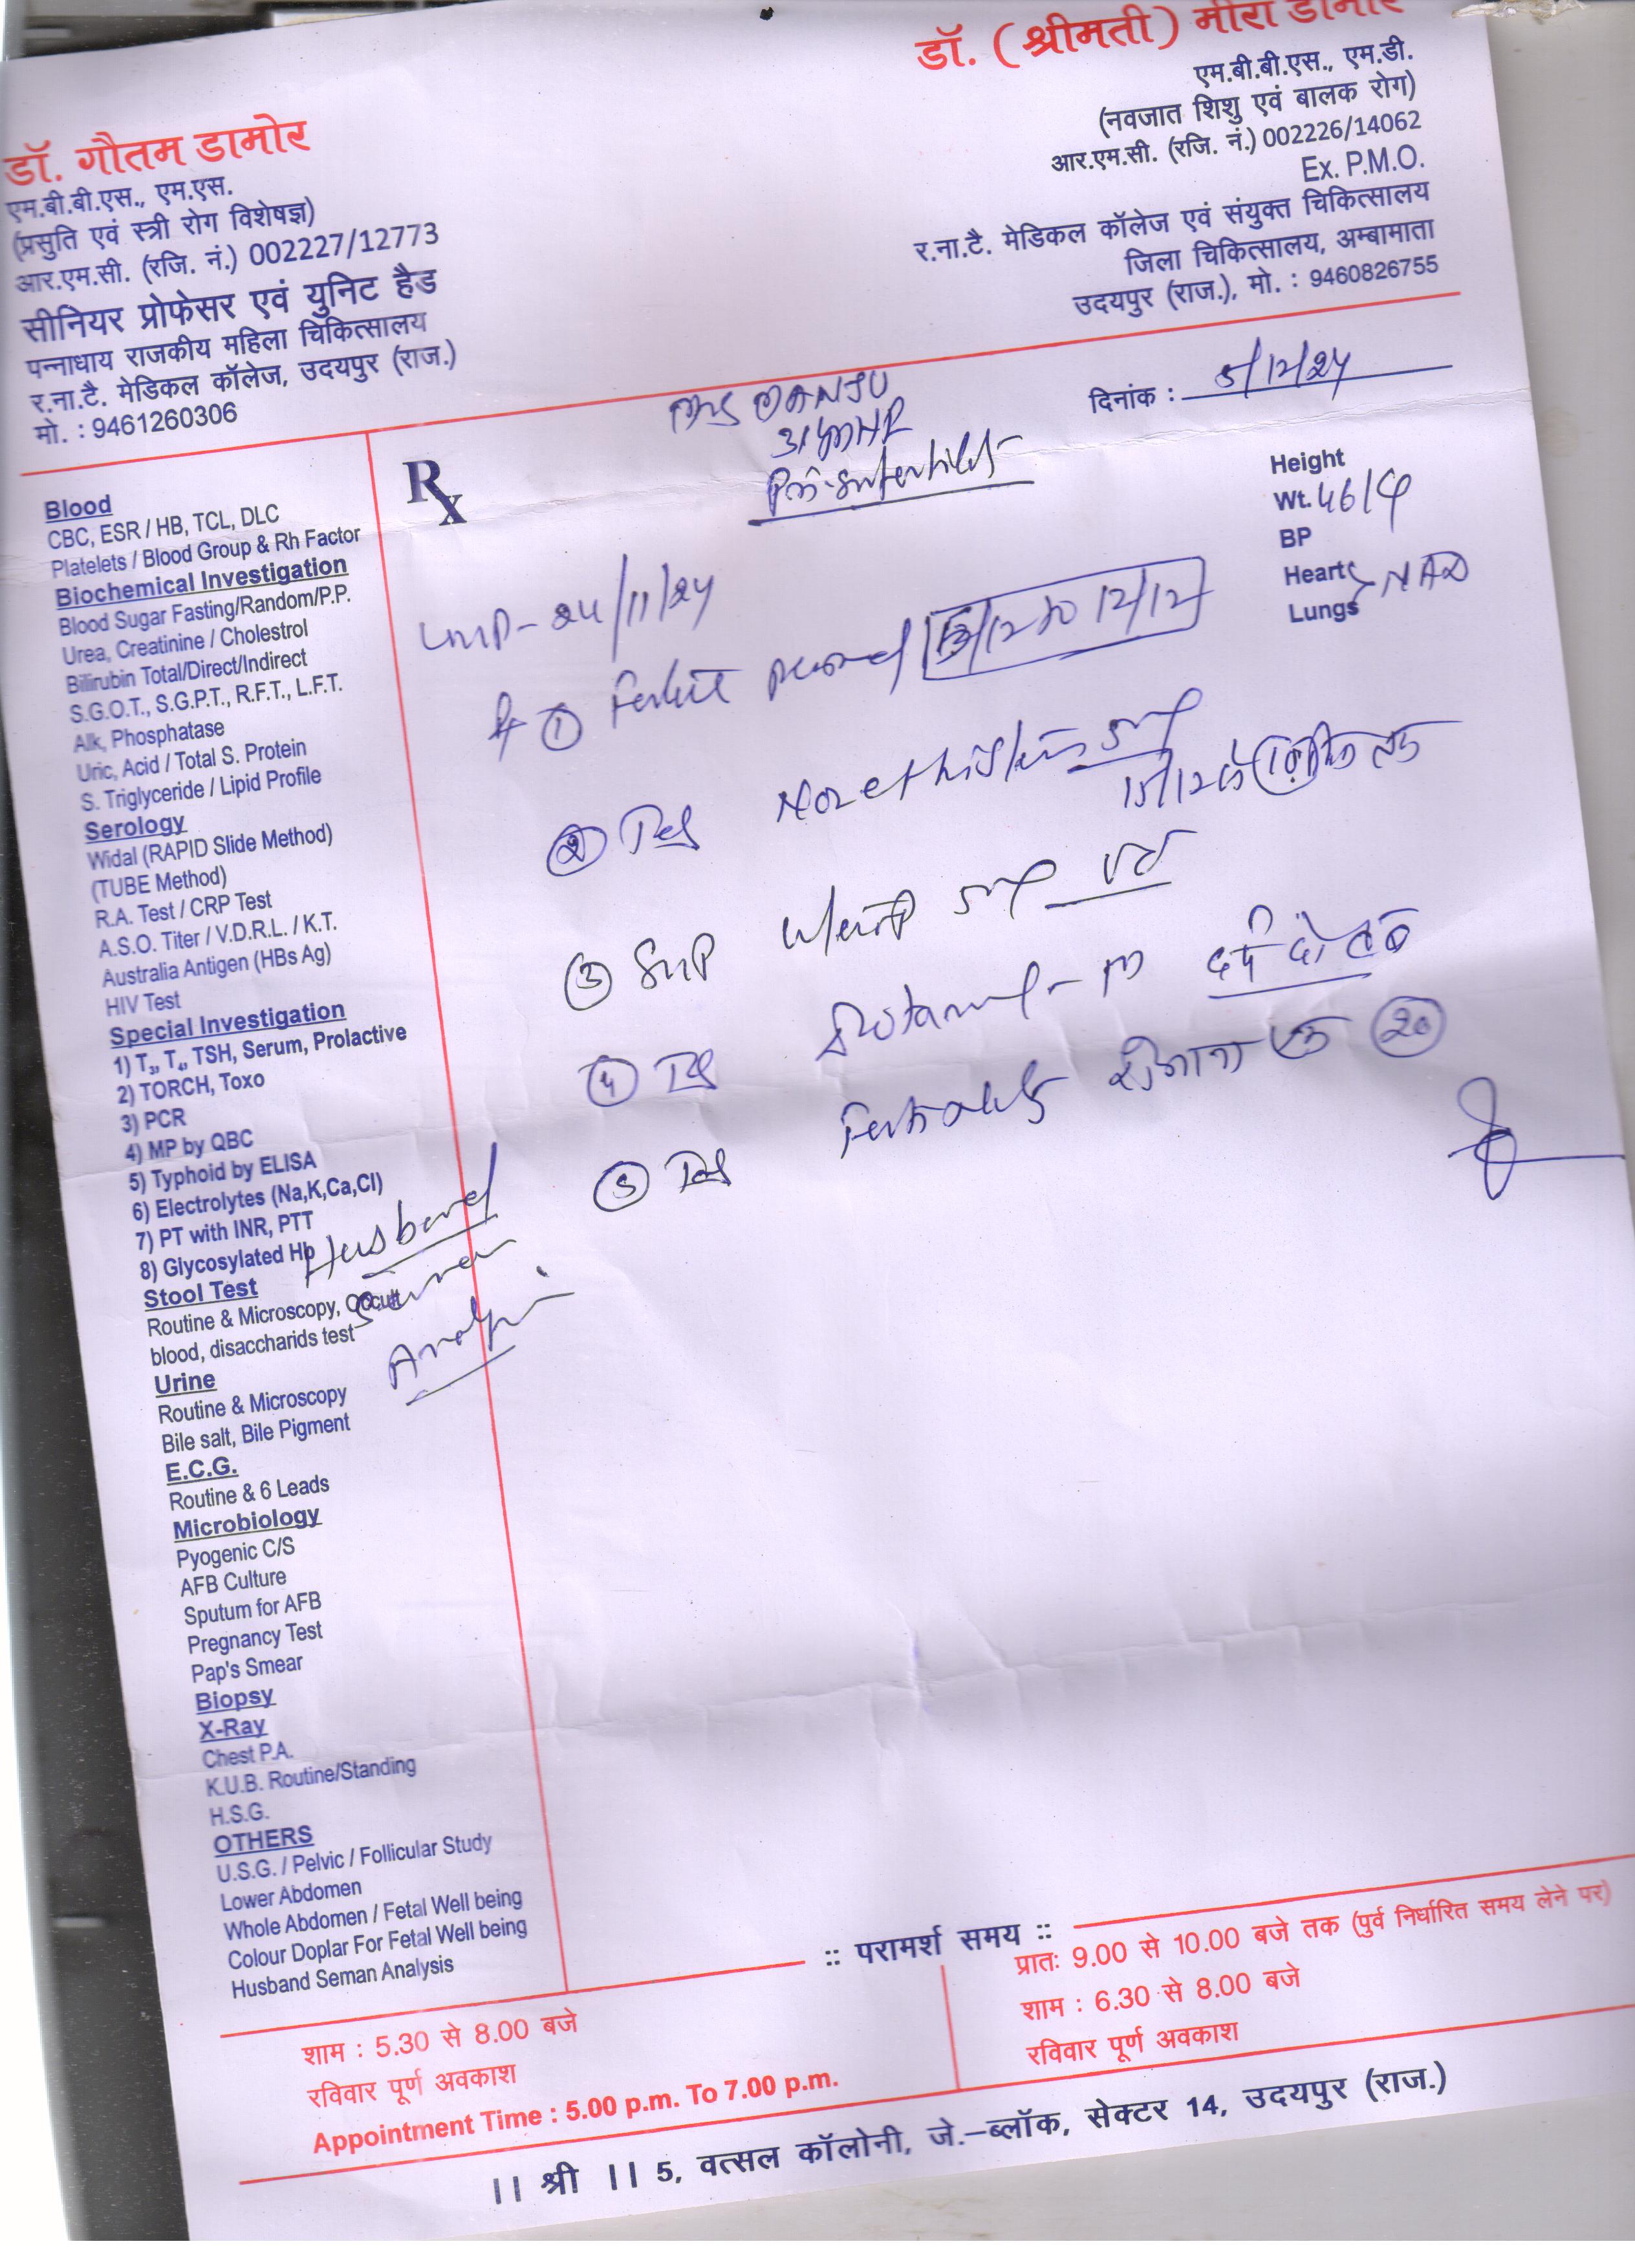 डॉ. गौतम डामोर
एम.बी.बी.एस., एम.एस.
(प्रसुति एवं स्त्री रोग विशेषज्ञ)
आर.एम.सी. (रजि. नं.) 002227/12773
सीनियर प्रोफेसर एवं युनिट हैड
पन्नाधाय राजकीय महिला चिकित्सालय
र.ना.टै. मेडिकल कॉलेज, उदयपुर (राज.)
मो. : 9461260306
डॉ. (श्रीमती) मीरा डामोर
एम.बी.बी.एस., एम.डी.
(नवजात शिशु एवं बालक रोग)
आर.एम.सी. (रजि. नं.) 002226/14062
Ex. P.M.O.
र.ना.टै. मेडिकल कॉलेज एवं संयुक्त चिकित्सालय
जिला चिकित्सालय, अम्बामाता
उदयपुर (राज.), मो. : 9460826755
दिनांक : 5/12/24
MRS MANJU
Height
Wt. 46
BP
Heart
Lungs NAD
Rx
LMP - 24/11/24
①
②
③
④ दर्द हो तब
⑤ रोजाना एक 20
Husband
Semen
Blood
CBC, ESR / HB, TCL, DLC
Platelets / Blood Group & Rh Factor
Biochemical Investigation
Blood Sugar Fasting/Random/P.P.
Urea, Creatinine / Cholestrol
Billirubin Total/Direct/Indirect
S.G.O.T., S.G.P.T., R.F.T., L.F.T.
Alk, Phosphatase
Uric, Acid / Total S. Protein
S. Triglyceride / Lipid Profile
Serology
Widal (RAPID Slide Method)
(TUBE Method)
R.A. Test / CRP Test
A.S.O. Titer / V.D.R.L. / K.T.
Australia Antigen (HBs Ag)
HIV Test
Special Investigation
1) T₃, T₄, TSH, Serum, Prolactive
2) TORCH, Toxo
3) PCR
4) MP by QBC
5) Typhoid by ELISA
6) Electrolytes (Na,K,Ca,Cl)
7) PT with INR, PTT
8) Glycosylated Hb
Stool Test
Routine & Microscopy, Occult
blood, disaccharids test
Urine
Routine & Microscopy
Bile salt, Bile Pigment
E.C.G.
Routine & 6 Leads
Microbiology
Pyogenic C/S
AFB Culture
Sputum for AFB
Pregnancy Test
Pap's Smear
Biopsy
X-Ray
Chest P.A.
K.U.B. Routine/Standing
H.S.G.
OTHERS
U.S.G. / Pelvic / Follicular Study
Lower Abdomen
Whole Abdomen / Fetal Well being
Colour Doplar For Fetal Well being
Husband Seman Analysis
:: परामर्श समय ::
शाम : 5.30 से 8.00 बजे
रविवार पूर्ण अवकाश
Appointment Time : 5.00 p.m. To 7.00 p.m.
प्रातः 9.00 से 10.00 बजे तक (पुर्व निर्धारित समय लेने पर)
शाम : 6.30 से 8.00 बजे
रविवार पूर्ण अवकाश
|| श्री || 5, वत्सल कॉलोनी, जे.–ब्लॉक, सेक्टर 14, उदयपुर (राज.)